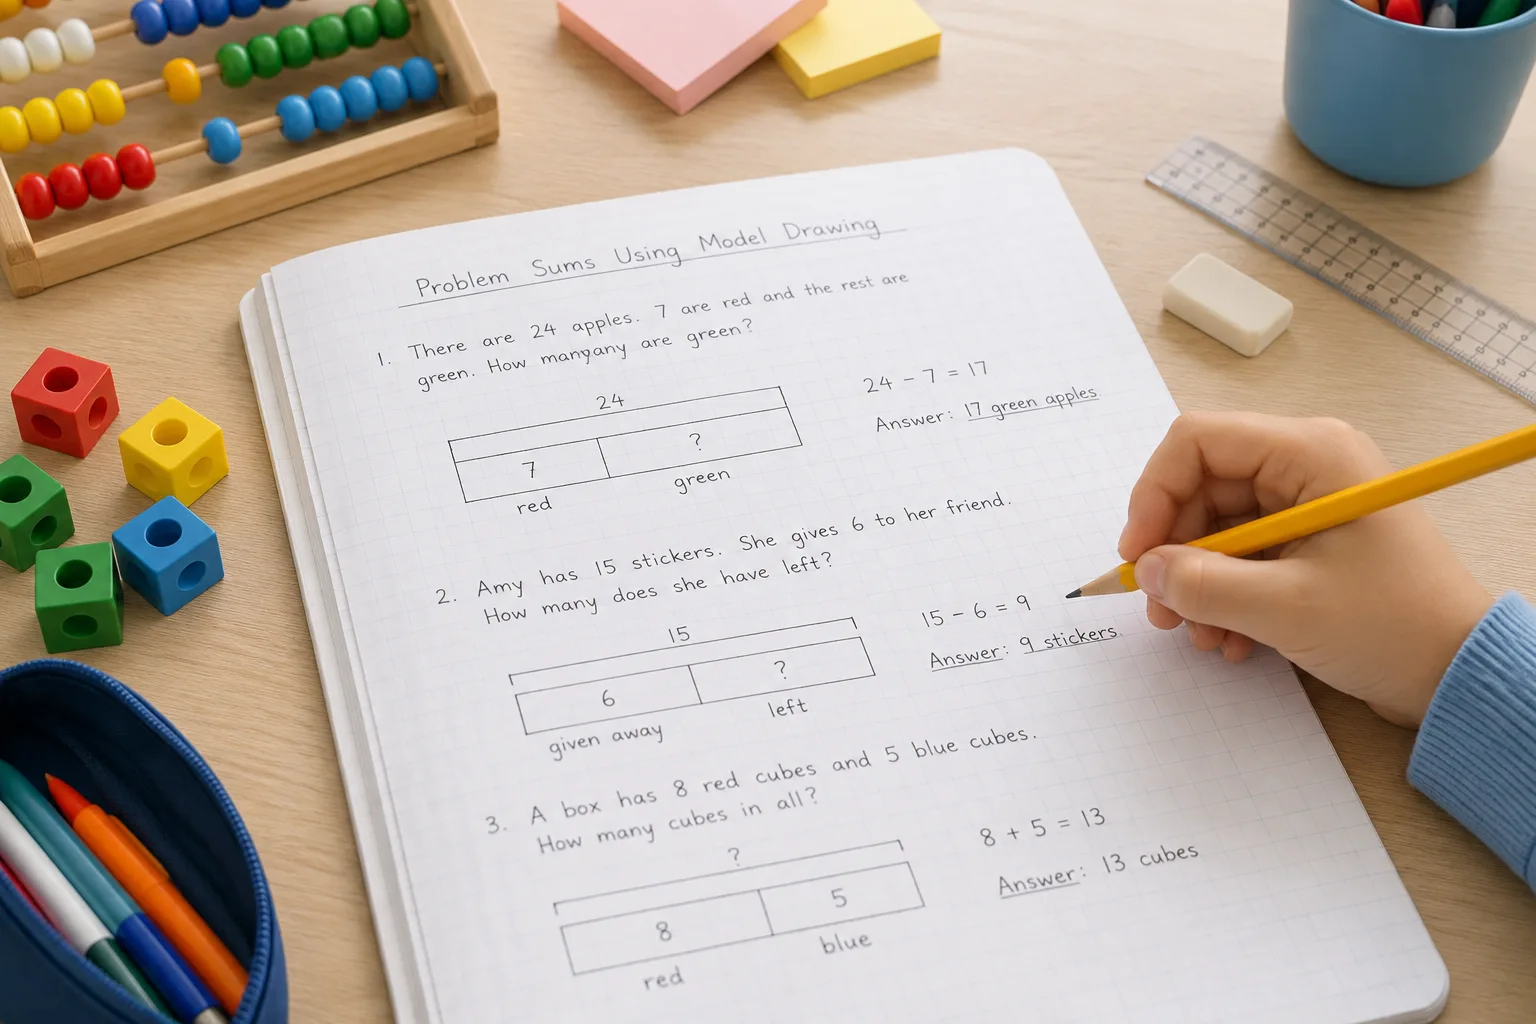 Problem Sums Using Model Drawing
1. There are 24 apples. 7 are red and the rest are
green. How manyany are green?
24
7
?
red
green
24 - 7 = 17
Answer: 17 green apples
2. Amy has 15 stickers. She gives 6 to her friend.
How many does she have left?
15
6
?
given away
left
15 - 6 = 9
Answer: 9 stickers
3. A box has 8 red cubes and 5 blue cubes.
How many cubes in all?
?
8
5
red
blue
8 + 5 = 13
Answer: 13 cubes